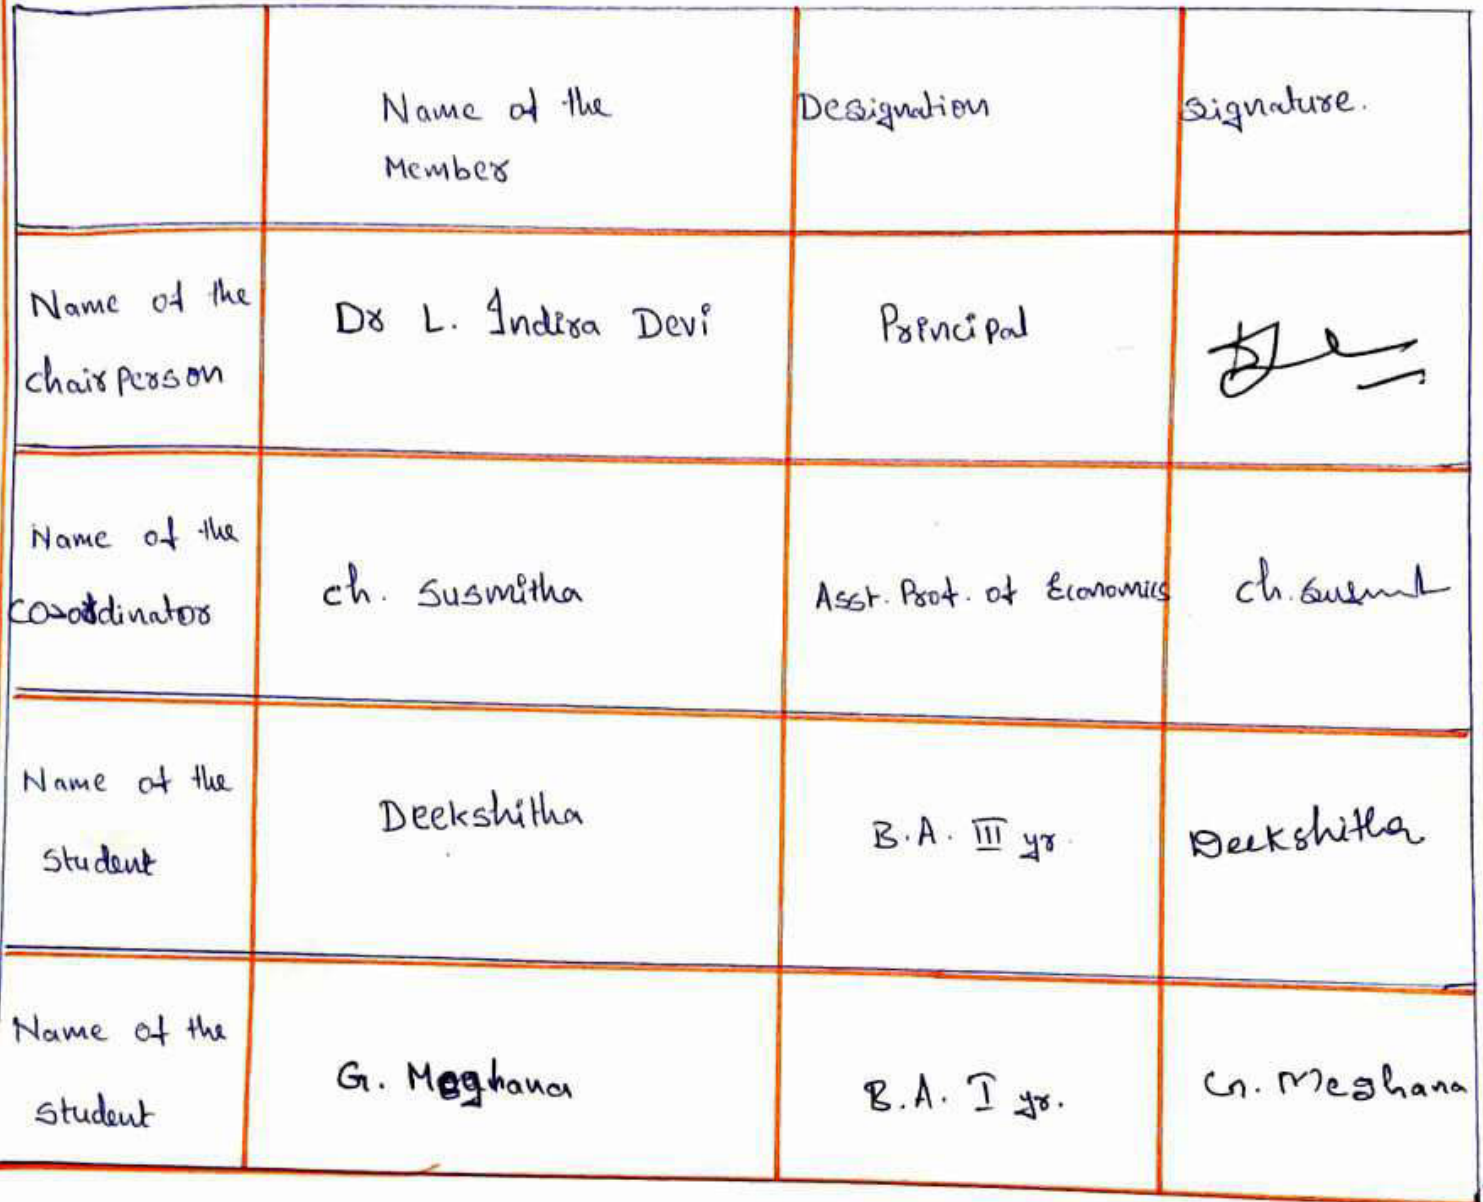 Name of the
Member
Designation
Signature.
Name of the
chairperson
Dr L. Indira Devi
Principal
Name of the
Coordinator
ch. Susmitha
Asst. Prof. of Economics
Name of the
Student
Deekshitha
B.A. III yr.
Deekshitha
Name of the
Student
G. Meghana
B.A. I yr.
G. Meghana